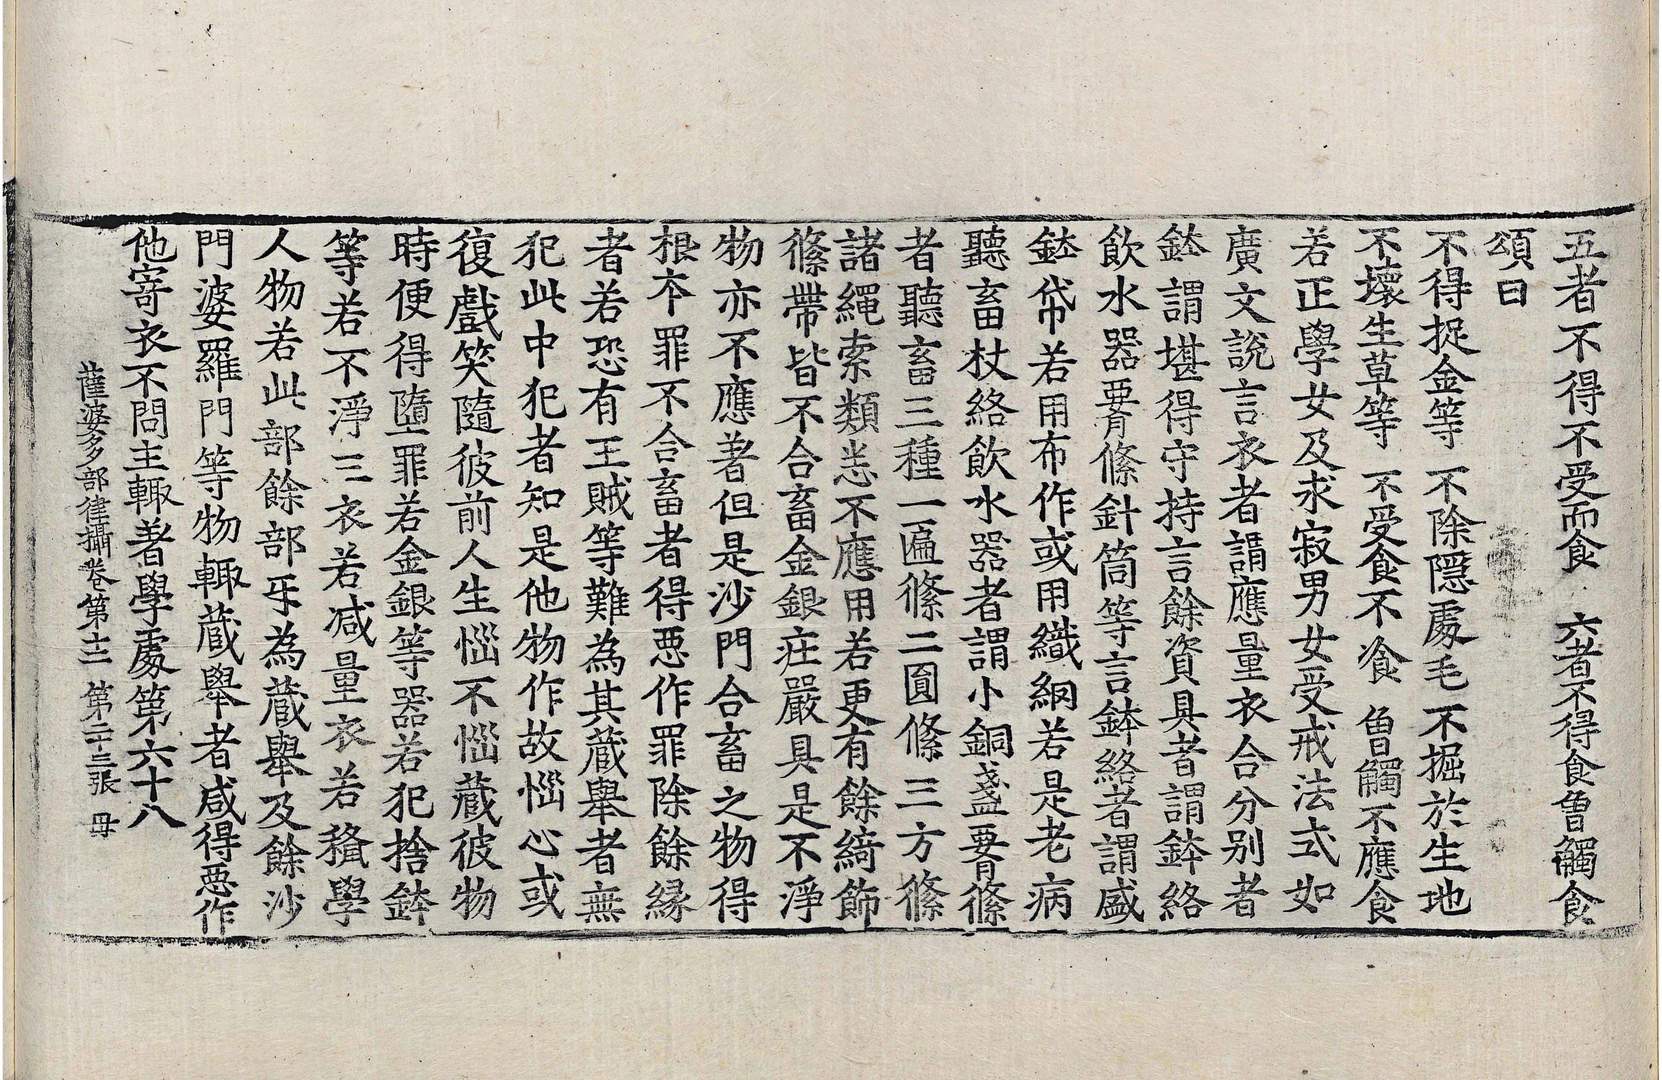 五者不得不受而食　六者不得食曾觸食
頌曰
不得捉金等　不除隱處毛　不掘於生地
不壞生草等　不受食不飡　曾觸不應食
若正學女及求寂男女受戒法式如
廣文說言衣者謂應量衣合分別者
鉢謂堪得守持言餘資具者謂鉢絡
飲水器䙅絛針筒等言鉢絡者謂盛
鉢帒若用布作或用織網若是老病
聽畜杖絡飲水器者謂小銅盞䙅絛
者聽畜三種一匾絛二圓絛三方絛
諸繩索類悉不應用若更有餘綺飾
絛帶皆不合畜金銀莊嚴具是不淨
物亦不應著但是沙門合畜之物得
根本罪不合畜者得惡作罪除餘縁
者若恐有王賊等難為其蔵舉者無
犯此中犯者知是他物作故惱心或
復戲笑隨彼前人生惱不惱蔵彼物
時便得墮罪若金銀等器若犯捨鉢
等若不淨三衣若减量衣若䅥學
人物若此部餘部㸦為蔵舉及餘沙
門婆羅門等物輙蔵舉者咸得惡作
他寄衣不問主輙著學處第六十八
薩婆多部律攝卷第十二　第二十三張　毋